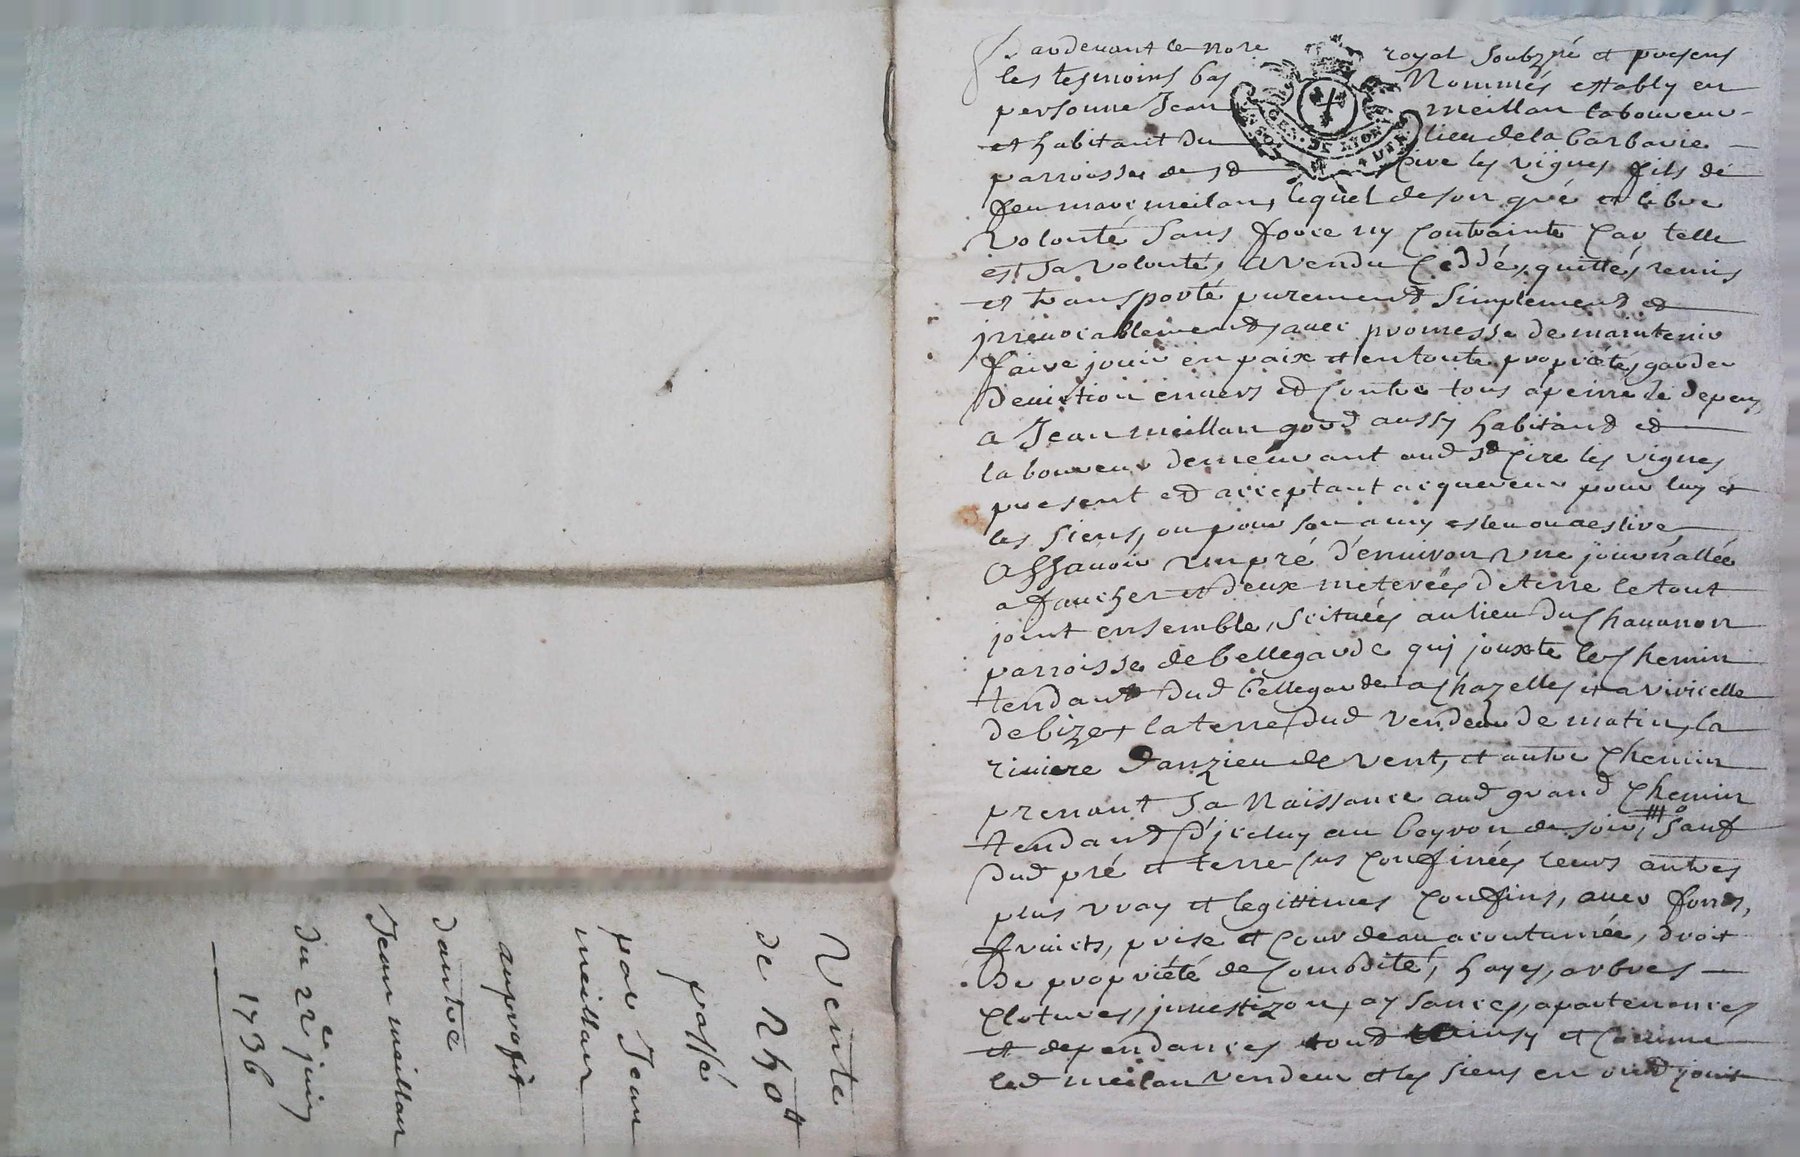 Pardevant le nore royal soubzné et presens
les tesmoins bas Nommés estably en
personne Jean meillan laboureur
et habitant du lieu de la barbarie
parroisse de st Cire les vignes fils de
feu marc meilan, lequel de son gré et libre
volonté sans force ny contrainte Car telle
est sa volonté, a vendu Ceddé, quitté, remis
et transporté purement simplement et
jrreuocablement, auec promesse de maintenir
faire jouir en paix et en toute proprieté, garder
deuiction enuers et Contre tous a peine de depens
a Jean meillan gord aussy habitand et
laboureur demeurant aud st Cire les vignes
present et acceptant acquereur pour luy et
les siens, ou pour son amy esleu ou aeslire
assauoir un pré d'enuiron une journallée
a faucher et deux meterées de terre le tout
joint ensemble, scituées au lieu du Chauanon
parroisse de bellegarde qui jouxte le Chemin
tendant dud bellegarde a Chazelles et a viricelle
de bize, la terre dud vendeur de matin, la
riuiere danzieu de vent, et autre Chemin
prenant sa Naissance aud grand Chemin
tendant d'jceluy au beyron de soir, sauf
dud pré et terre sus Confinées leurs autres
plus vray et legittimes Confins, auec fonds,
fruicts, prise et Cour deau acoutumée, droit
de propriété de Comodité, hayes, arbres
Clotures, jnuestizon, aysances, apartenances
et dependances tout ainsy et Comme
led meilan vendeur et les siens en ont jouit
GEN. DE LYON
Vente
de 240tt
passé
par Jean
meillan
auprofit
dautre
Jean meillan
du 22e juin
1736